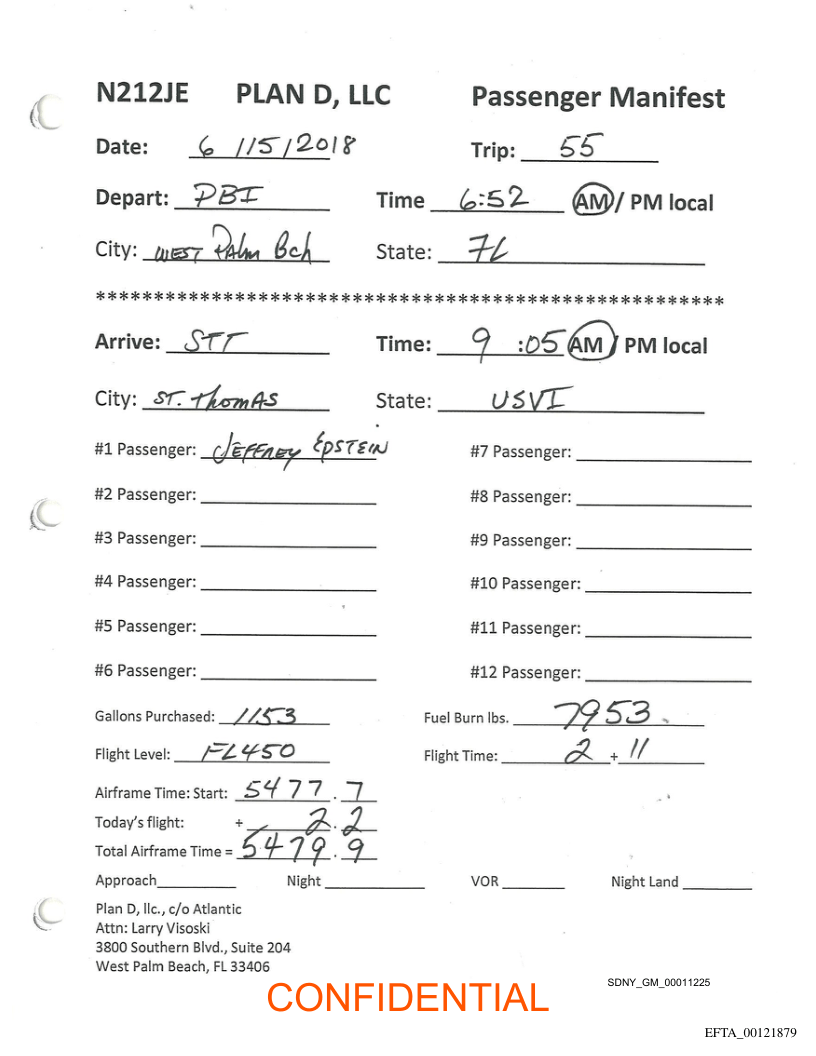 N212JE PLAN D, LLC Passenger Manifest
Date: 6 /15/2018 Trip: 55
Depart: PBI Time 6:52 AM/ PM local
City: WEST PAlm Bch State: FL
******************************************************
Arrive: STT Time: 9 :05 AM / PM local
City: ST. ThomAS State: USVI
#1 Passenger: JEFFREY EPSTEIN #7 Passenger:
#2 Passenger: #8 Passenger:
#3 Passenger: #9 Passenger:
#4 Passenger: #10 Passenger:
#5 Passenger: #11 Passenger:
#6 Passenger: #12 Passenger:
Gallons Purchased: 1153 Fuel Burn lbs. 7953
Flight Level: FL450 Flight Time: 2 + 11
Airframe Time: Start: 5477.7
Today's flight: + 2.2
Total Airframe Time = 5479.9
Approach Night VOR Night Land
Plan D, llc., c/o Atlantic
Attn: Larry Visoski
3800 Southern Blvd., Suite 204
West Palm Beach, FL 33406
SDNY_GM_00011225
CONFIDENTIAL
EFTA_00121879